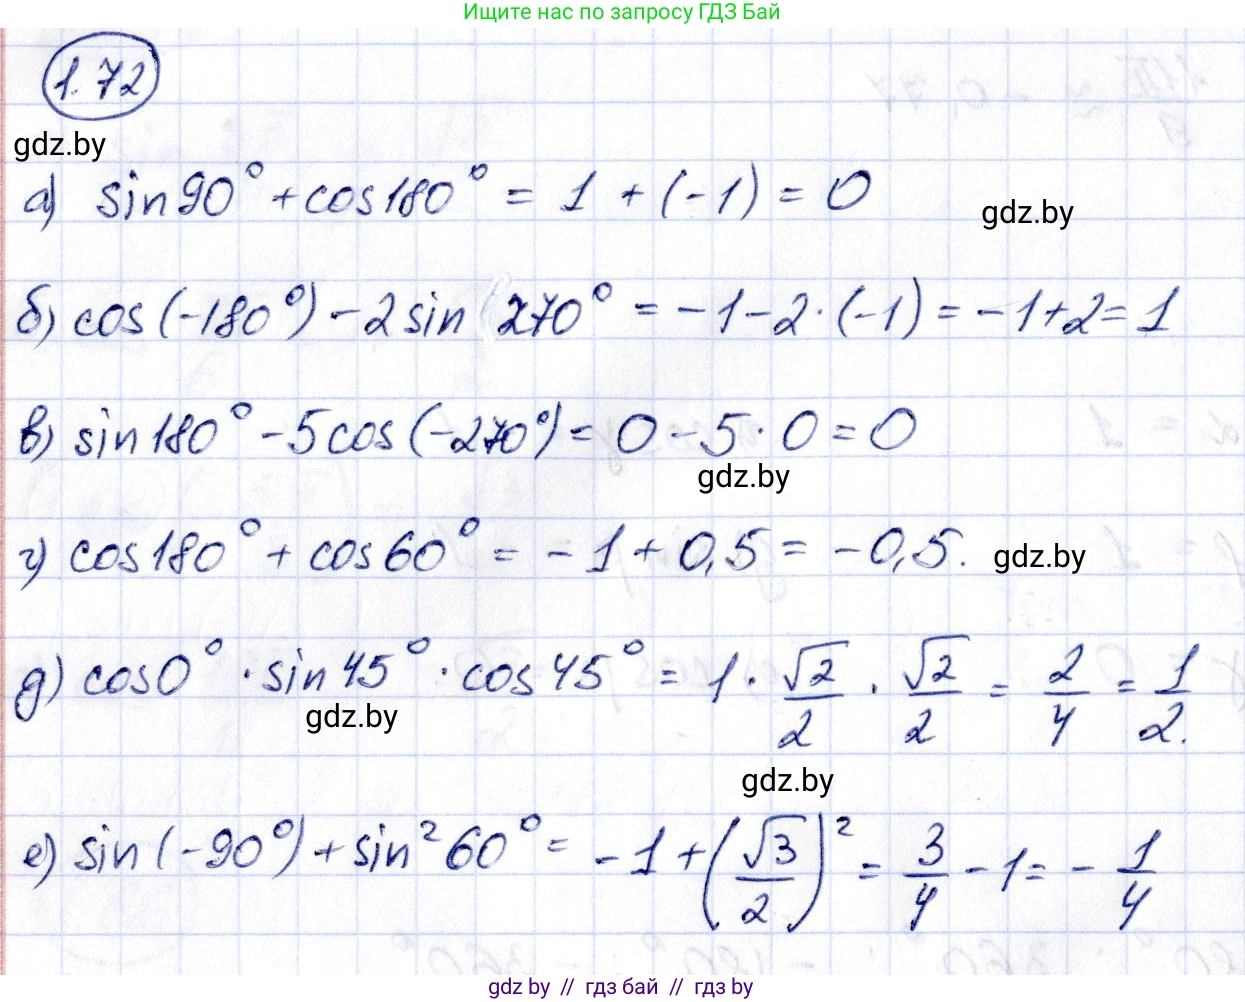 Ищите нас по запросу ГДЗ Бай
1.72
gdz.by
а) sin90° + cos180° = 1 + (-1) = 0
gdz.by
б) cos(-180°) - 2sin 270° = -1 - 2·(-1) = -1+2 = 1
в) sin180° - 5cos(-270°) = 0 - 5·0 = 0
gdz.by
г) cos180° + cos60° = -1 + 0,5 = -0,5.
gdz.by
д) cos0° · sin45° · cos45° = 1 · √2/2 · √2/2 = 2/4 = 1/2.
gdz.by
gdz.by
е) sin(-90°) + sin²60° = -1 + (√3/2)² = 3/4 - 1 = -1/4
gdz.by // гдз бай // gdz.by